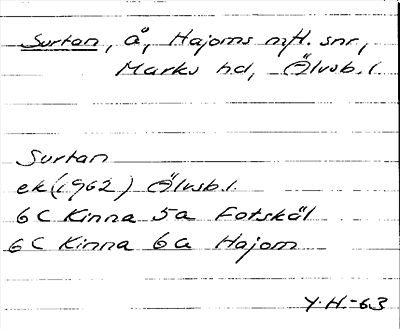 Surtan, å, Hajoms mfl. snr,
Marks hd, Älvsb. l.
Surtan
ek (1962) Älvsb. l.
6 C Kinna 5a Fotskäl
6 C Kinna 6a Hajom
Y. H.-63